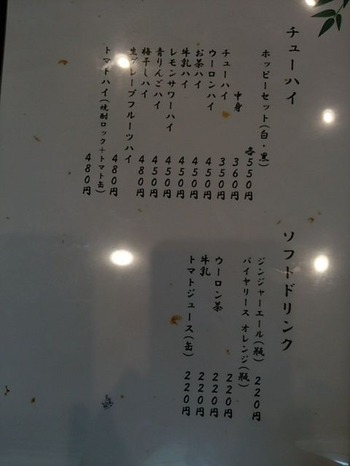 チューハイ
ホッピーセット(白・黒) 各550円
中身 360円
チューハイ 350円
ウーロンハイ 450円
お茶ハイ 450円
牛乳ハイ 450円
レモンサワーハイ 450円
青りんごハイ 450円
梅干しハイ 480円
生グレープフルーツハイ 480円
トマトハイ(焼酎ロック+トマト缶) 480円
ソフトドリンク
ジンジャーエール(瓶) 220円
バイヤリース オレンジ(瓶) 220円
ウーロン茶 220円
牛乳 220円
トマトジュース(缶) 220円